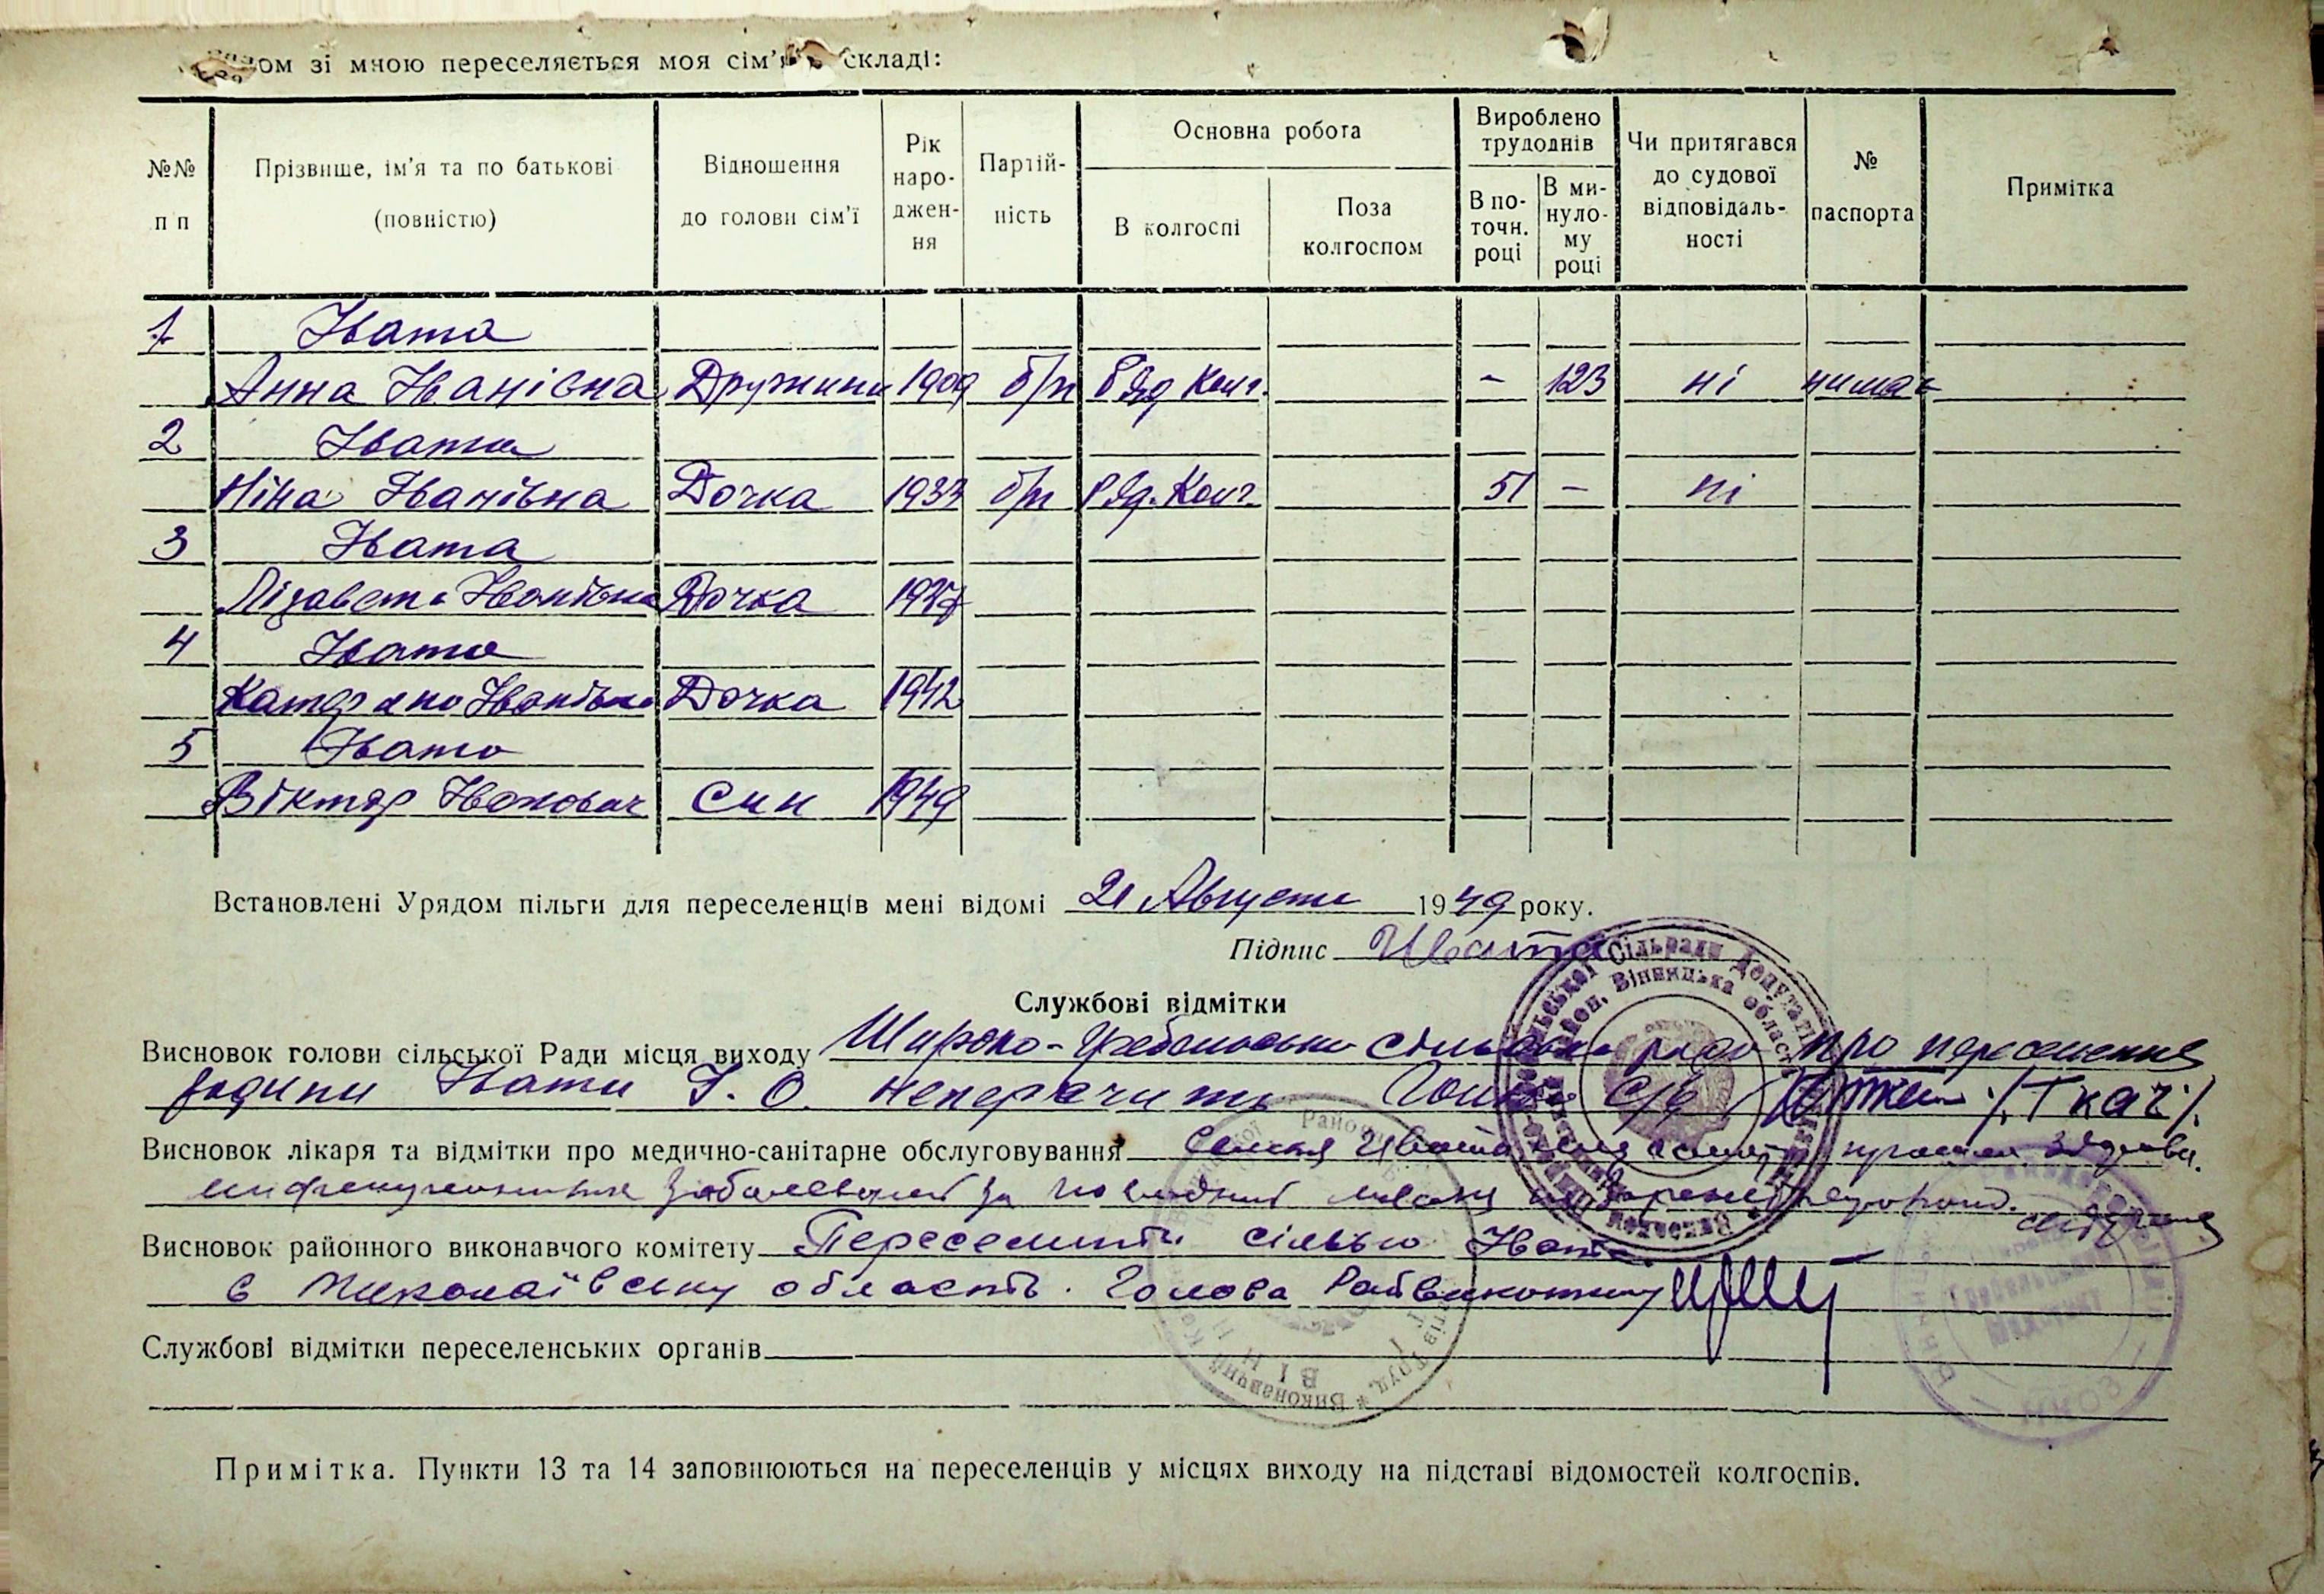 Разом зі мною переселяється моя сім'я в складі:
№№ п п
Прізвище, ім'я та по батькові (повністю)
Відношення до голови сім'ї
Рік народження
Партійність
Основна робота
В колгоспі
Поза колгоспом
Вироблено трудоднів
В поточн. році
В минулому році
Чи притягався до судової відповідальності
№ паспорта
Примітка
1 Івата
Анна Іванівна Дружина 1909 б/п Ряд Колг. - 123 ні нимає
2 Івата
Ніна Іванівна Дочка 1933 б/п Ряд. Колг. 51 - ні
3 Івата
Лізавета Іванівна Дочка 1937
4 Івата
Катерина Іванівна Дочка 1942
5 Івата
Віктор Іванович Син 1949
Встановлені Урядом пільги для переселенців мені відомі 21 Августа 1949 року.
Підпис Ивата
Службові відмітки
Висновок голови сільської Ради місця виходу Широко-Гребельська сільська рада про переселення
родини Івати І. О. неперечить Голова С/р /Ткач/.
Висновок лікаря та відмітки про медично-санітарне обслуговування Семья Ивата
заболеваний за последний месяц не
Висновок районного виконавчого комітету Переселити сімью Івата
в Миколаївську область. Голова Райвиконкому
Службові відмітки переселенських органів
Примітка. Пункти 13 та 14 заповнюються на переселенців у місцях виходу на підставі відомостей колгоспів.